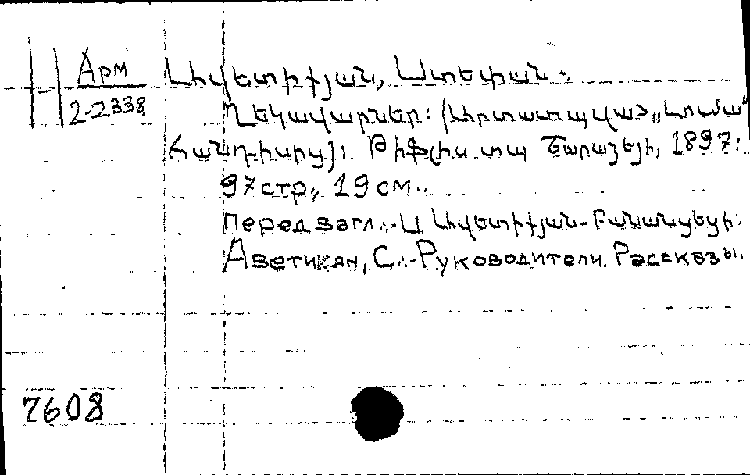 Арм
2-2338
Ավետիքյան, Ստեփան.
Ղեկավարներ: (Արտատպված „Լումա“
Հանդիսից): Թիֆլիս. տպ Շարաձեյի, 1897:
97 стр., 19 см.
Перед загл.:- Ս Ավետիքյան-
Аветикян, С.- Руководители. Рассказы.
7608